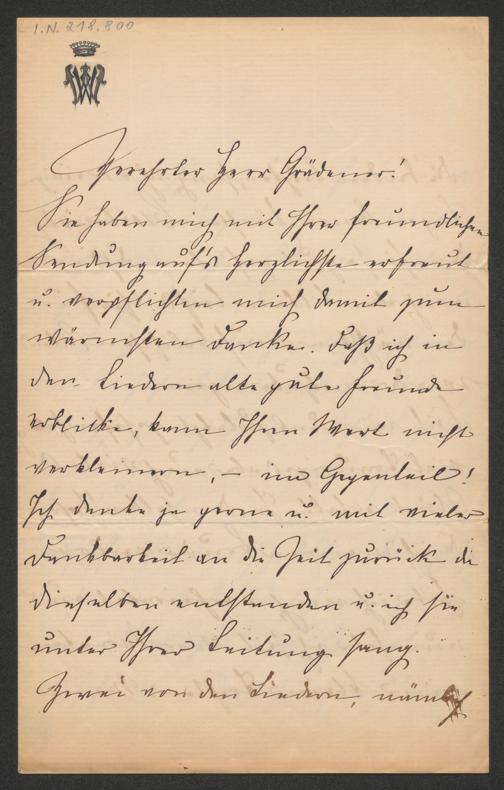 I.N. 218.800
W
Verehrter Herr Grädener!
Sie haben mich mit Ihrer freundlichen
Sendung auf's herzlichste erfreut
u. verpflichten mich damit zum
wärmsten Danke. Daß ich in
den Liedern alte gute Freunde
erblicke, kann Ihren Wert nicht
verkleinern, – im Gegenteil!
Ich denke ja gerne u. mit vieler
Dankbarkeit an die Zeit zurück die
dieselben entstanden u. ich sie
unter Ihrer Leitung sang.
Zwei von den Liedern, näml